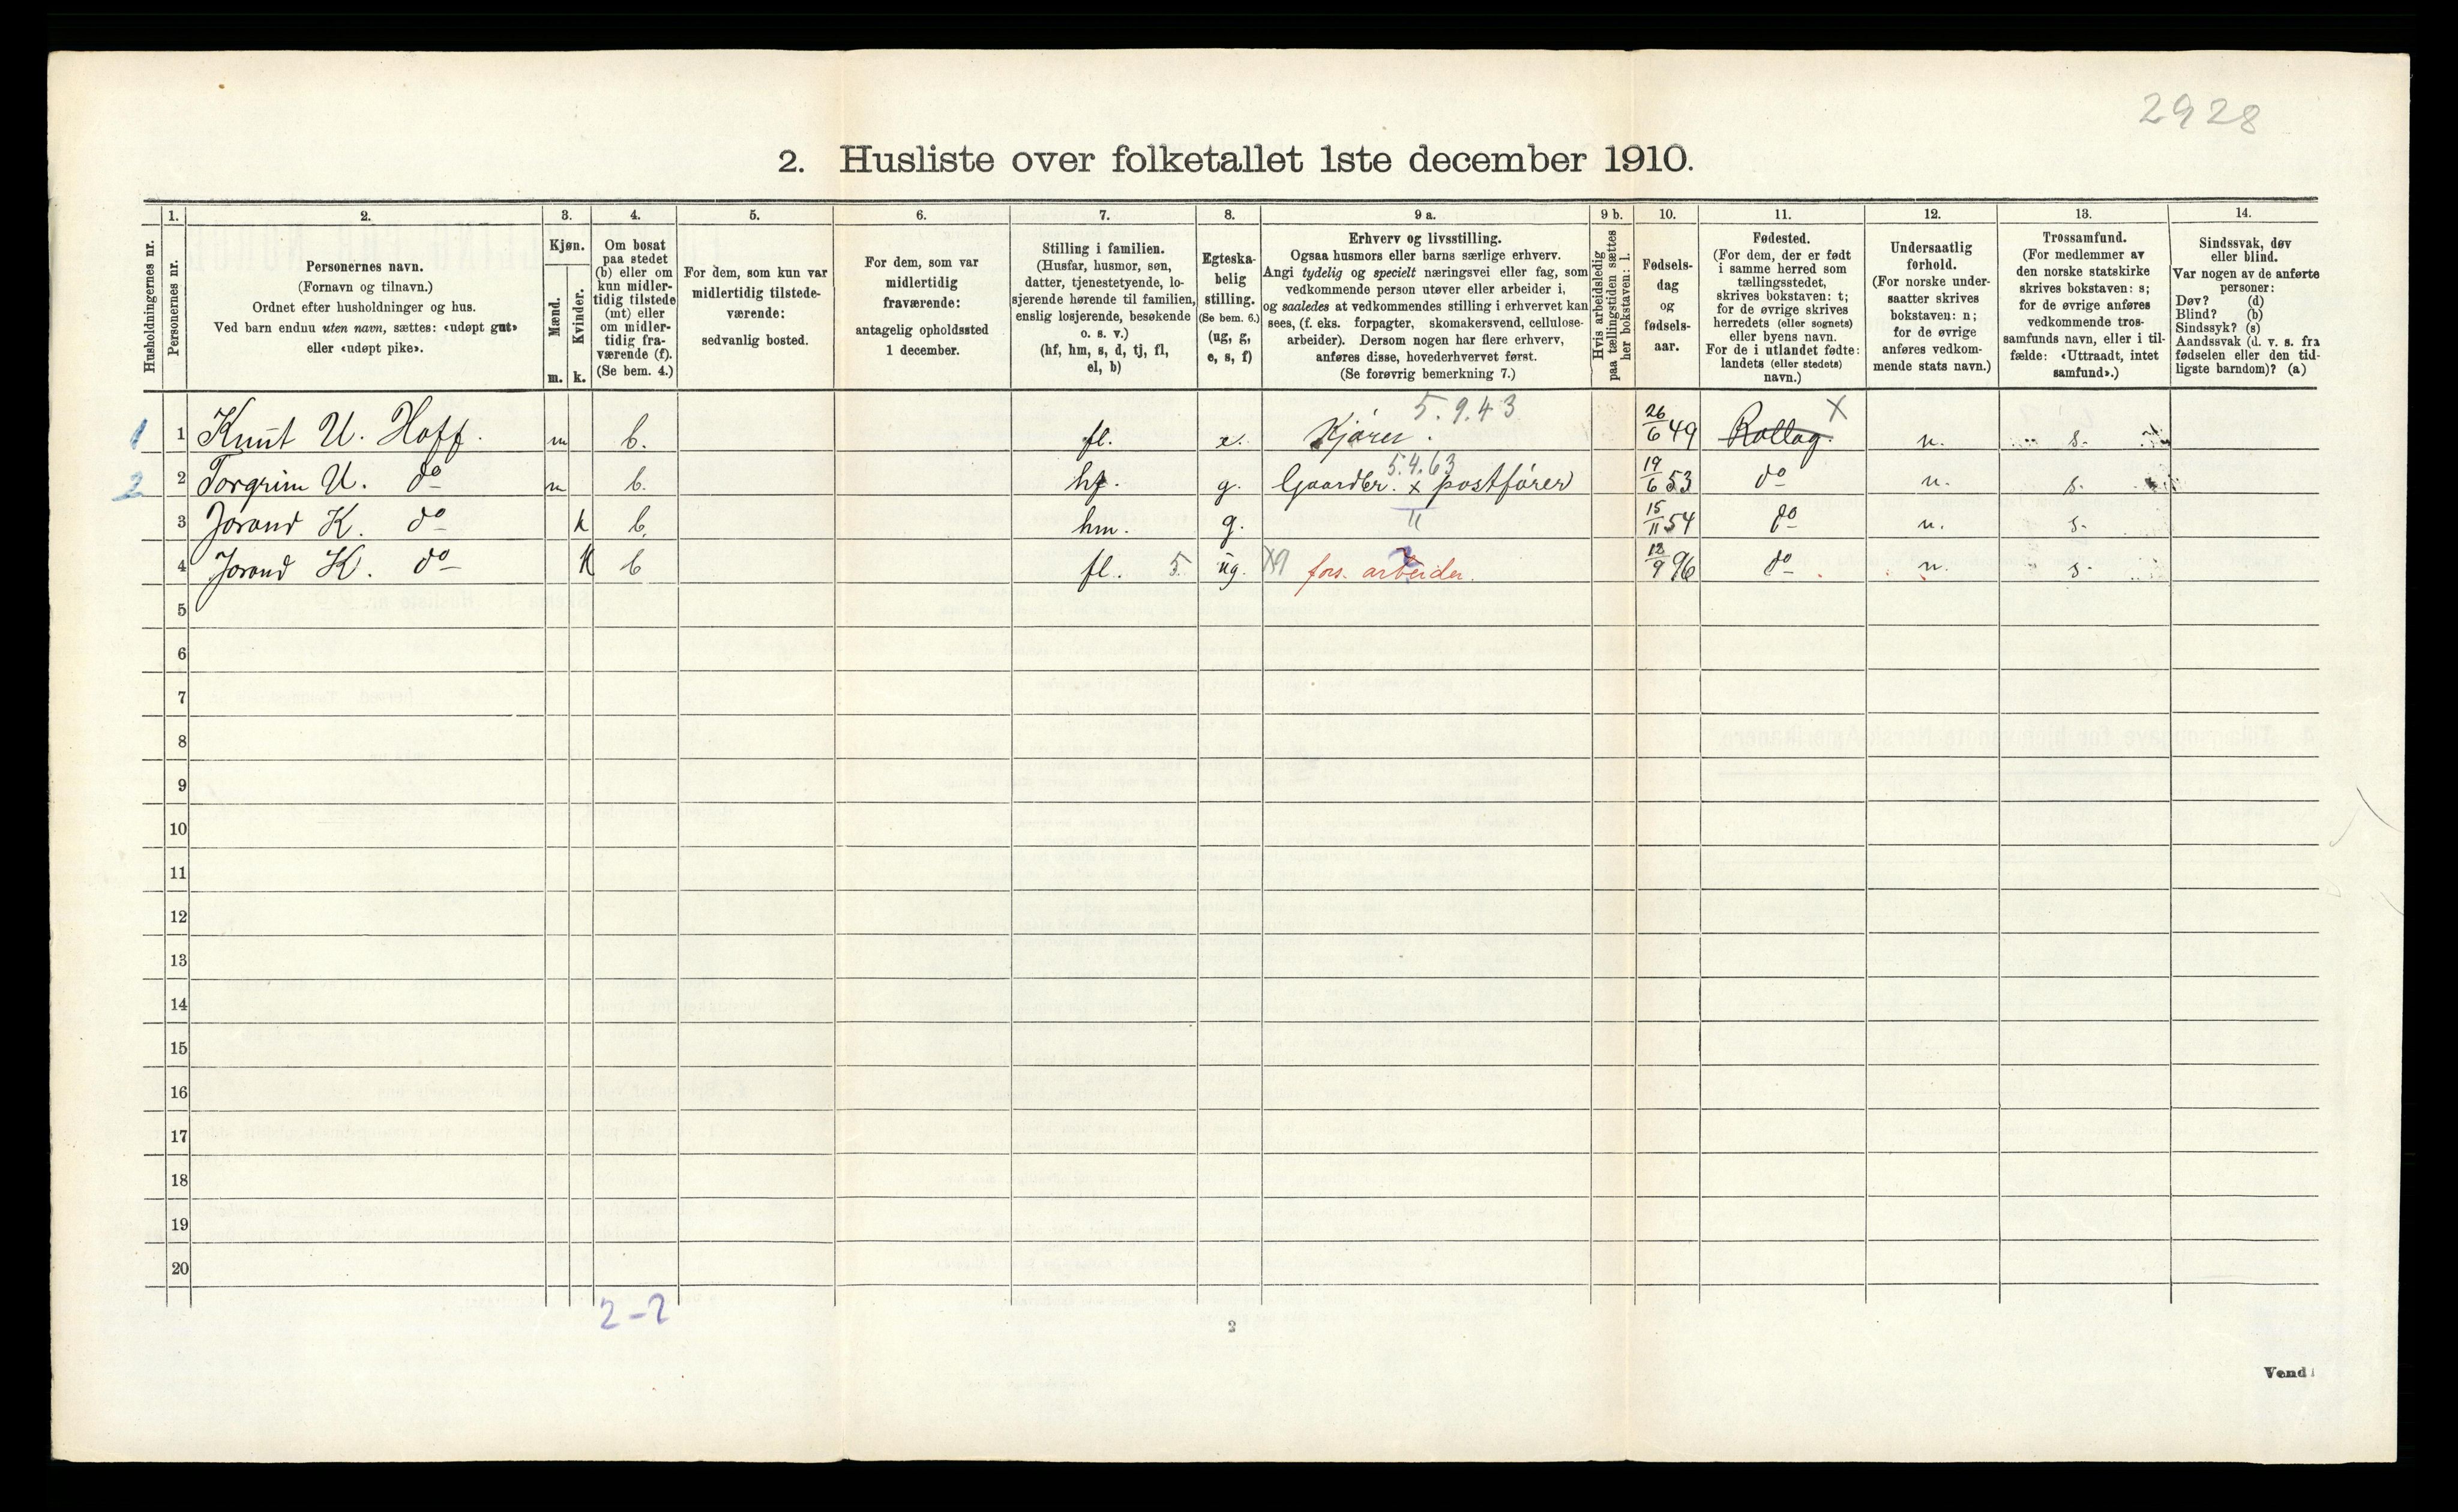 2928
2. Husliste over folketallet 1ste december 1910.
1. 2. 3. 4. 5. 6. 7. 8. 9 a. 9 b. 10. 11. 12. 13. 14.
Husholdningernes nr.
Personernes nr.
Personernes navn.
(Fornavn og tilnavn.)
Ordnet efter husholdninger og hus.
Ved barn endnu uten navn, sættes: «udøpt gut»
eller «udøpt pike».
Kjøn.
Mænd.
Kvinder.
m. k.
Om bosat
paa stedet
(b) eller om
kun midler-
tidig tilstede
(mt) eller
om midler-
tidig fra-
værende (f).
(Se bem. 4.)
For dem, som kun var
midlertidig tilstede-
værende:
sedvanlig bosted.
For dem, som var
midlertidig
fraværende:
antagelig opholdssted
1 december.
Stilling i familien.
(Husfar, husmor, søn,
datter, tjenestetyende, lo-
sjerende hørende til familien,
enslig losjerende, besøkende
o. s. v.)
(hf, hm, s, d, tj, fl,
el, b)
Egteska-
belig
stilling.
(Se bem. 6.)
(ug, g,
e, s, f)
Erhverv og livsstilling.
Ogsaa husmors eller barns særlige erhverv.
Angi tydelig og specielt næringsvei eller fag, som
vedkommende person utøver eller arbeider i,
og saaledes at vedkommendes stilling i erhvervet kan
sees, (f. eks. forpagter, skomakersvend, cellulose-
arbeider). Dersom nogen har flere erhverv,
anføres disse, hovederhvervet først.
(Se forøvrig bemerkning 7.)
Hvis arbeidsledig
paa tællingstiden sættes
her bokstaven: l.
Fødsels-
dag
og
fødsels-
aar.
Fødested.
(For dem, der er født
i samme herred som
tællingsstedet,
skrives bokstaven: t;
for de øvrige skrives
herredets (eller sognets)
eller byens navn.
For de i utlandet fødte:
landets (eller stedets)
navn.)
Undersaatlig
forhold.
(For norske under-
saatter skrives
bokstaven: n;
for de øvrige
anføres vedkom-
mende stats navn.)
Trossamfund.
(For medlemmer av
den norske statskirke
skrives bokstaven: s;
for de øvrige anføres
vedkommende tros-
samfunds navn, eller i til-
fælde: «Uttraadt, intet
samfund».)
Sindssvak, døv
eller blind.
Var nogen av de anførte
personer:
Døv? (d)
Blind? (b)
Sindssyk? (s)
Aandssvak (d. v. s. fra
fødselen eller den tid-
ligste barndom)? (a)
5.9.43 X
1 1 Knut U. Hoff. m b. fl. e. Kjører. 26/6 49 Rollag. n. s.
5.4.63
2 2 Torgrim U. do m b. hf. g. Gaardbr. x postfører 19/6 53 do n. s.
3 Jorand K. do k b. hm. g. 15/11 54 do n. s.
4 Jorand K. do k b fl. 5 ug. fors. arbeider. 12/9 96 do n. s.
5
6
7
8
9
10
11
12
13
14
15
16
17
18
19
20
2-2
2
Vend!